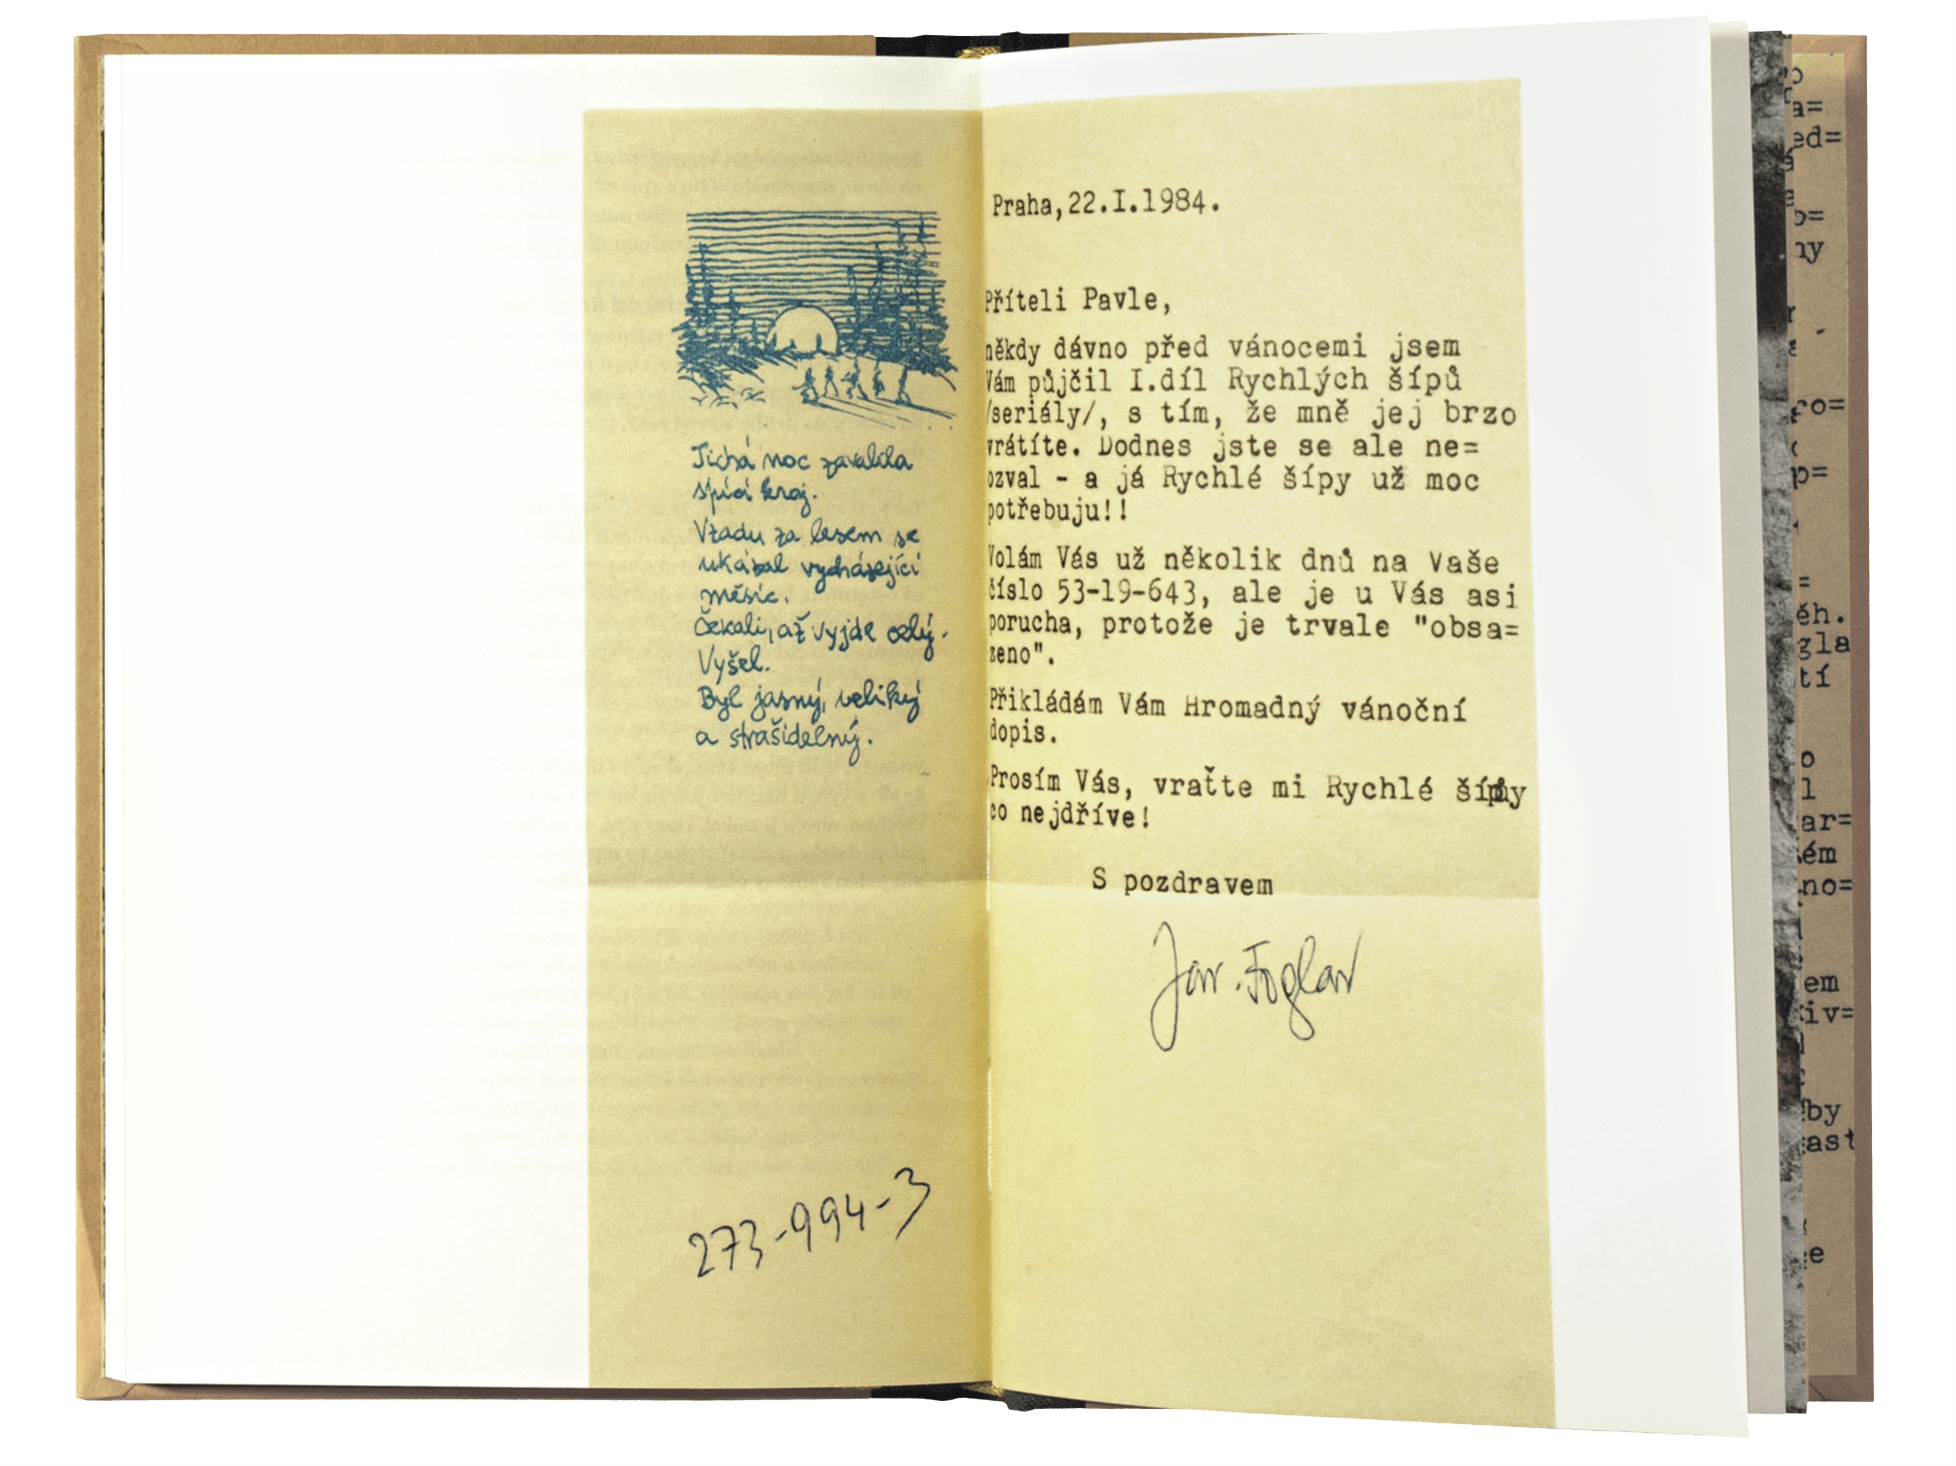 Tichá noc zavalila
spící kraj.
Vzadu za lesem se
ukázal vycházející
měsíc.
Čekali, až vyjde celý.
Vyšel.
Byl jasný, veliký
a strašidelný.
273-994-3
Praha, 22.I.1984.
Příteli Pavle,
někdy dávno před vánocemi jsem
Vám půjčil I.díl Rychlých šípů
/seriály/, s tím, že mně jej brzo
vrátíte. Dodnes jste se ale ne=
ozval - a já Rychlé šípy už moc
potřebuju!!
Volám Vás už několik dnů na Vaše
číslo 53-19-643, ale je u Vás asi
porucha, protože je trvale "obsa=
zeno".
Přikládám Vám Hromadný vánoční
dopis.
Prosím Vás, vraťte mi Rychlé šípy
co nejdříve!
S pozdravem
Jar. Foglar
a=
ed=
o=
ny
ro=
p=
=
ěh.
gla
tí
o
l
ar=
ém
no=
em
iv=
by
ast
e